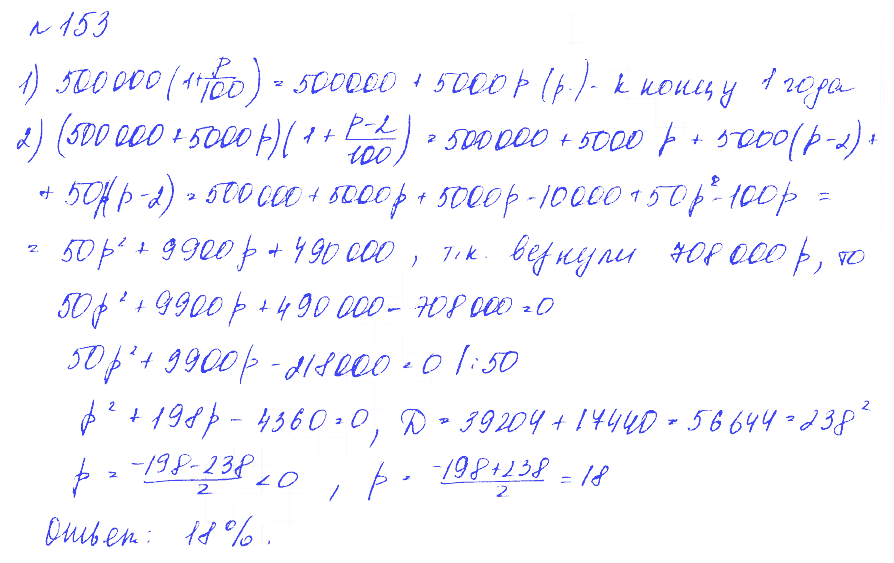 №153
1) 500000(1+p/100) = 500000 + 5000p (р.) - к концу 1 года
2) (500000+5000p)(1+(p-2)/100) = 500000+5000p + 5000(p-2)+
+ 50p(p-2) = 500000+5000p+5000p-10000+50p²-100p =
= 50p²+9900p+490000, т.к. вернули 708000р, то
50p²+9900p+490000-708000=0
50p²+9900p-218000=0 |:50
p²+198p-4360=0, D=39204+17440=56644=238²
p = (-198-238)/2 <0, p = (-198+238)/2 = 18
Ответ: 18%.